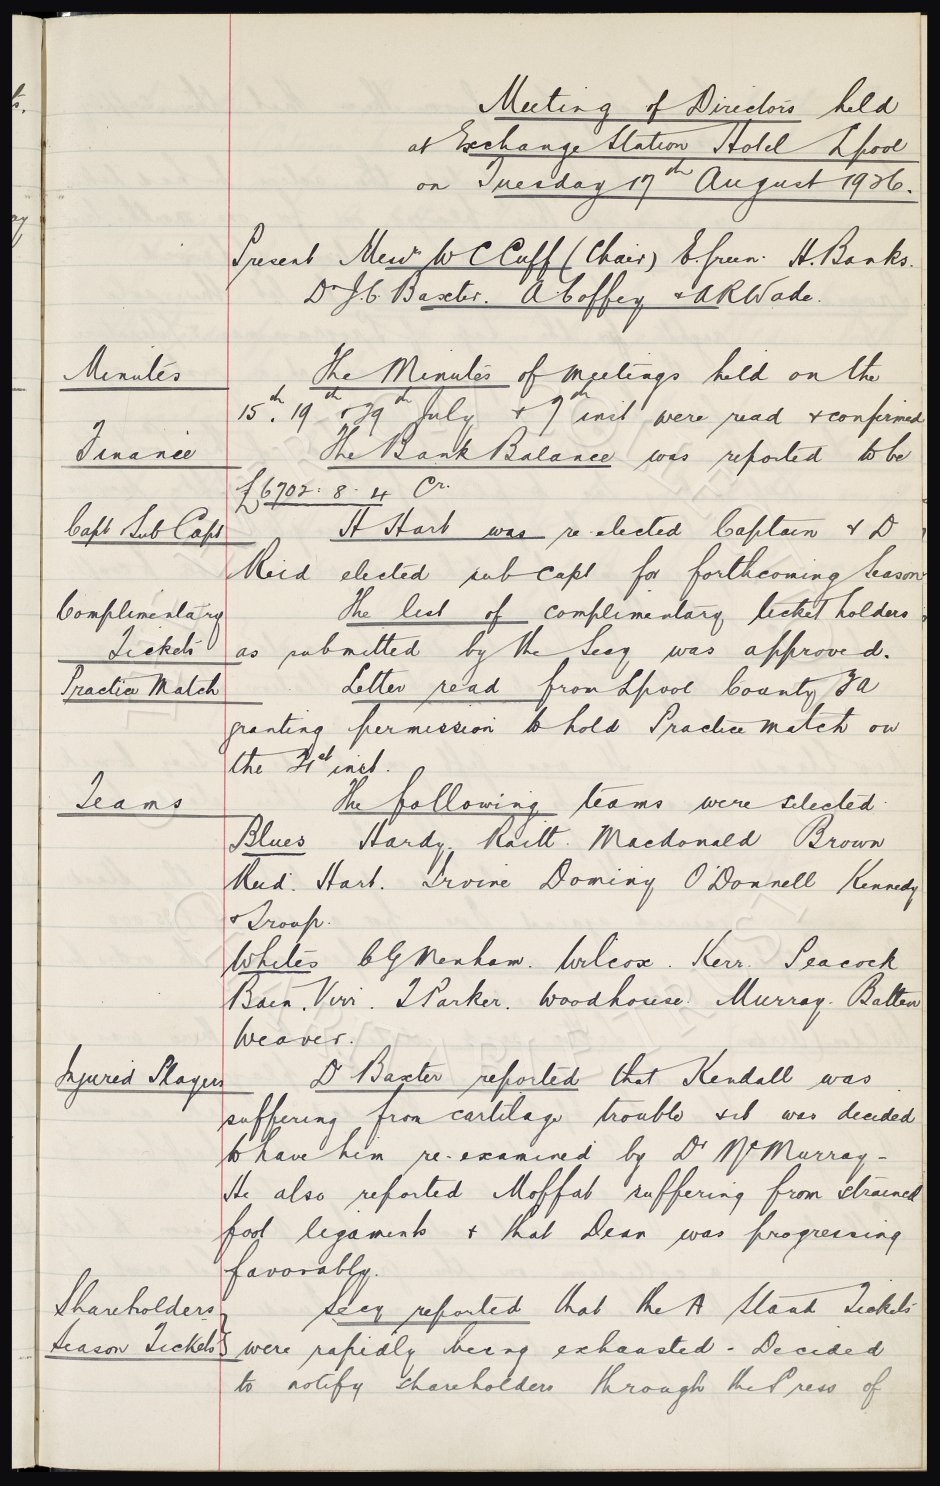 Meeting of Directors held
at Exchange Station Hotel Lpool
on Tuesday 17th August 1926.
Present Messrs W C Cuff (Chair) E. Green. H. Banks.
Dr J. C. Baxter. A Coffey & A R Wade.
Minutes
The Minutes of meetings held on the
15th. 19th & 29th July & 9th inst were read & confirmed
Finance
The Bank Balance was reported to be
£6702. 8. 4 Cr.
Capt Sub Capt
H Hart was re-elected Captain & D
Reid elected sub capt for forthcoming Season
Complimentary
Tickets
The list of complimentary ticket holders
as submitted by the Secy was approved.
Practice Match
Letter read from Lpool County FA
granting permission to hold Practice match on
the 21st inst.
Teams
The following teams were selected.
Blues Hardy. Raitt. Macdonald Brown
Reid. Hart. Irvine Dominy O'Donnell Kennedy
& Troup.
Whites C G Menham. Wilcox. Kerr. Peacock
Bain. Virr. J Parker. Woodhouse. Murray. Batten
Weaver.
Injured Players
Dr Baxter reported that Kendall was
suffering from cartilage trouble & it was decided
to have him re-examined by Dr McMurray -
He also reported Moffat suffering from strained
foot ligaments & that Dean was progressing
favorably.
Shareholders
Season Tickets
Secy reported that the A Stand Tickets
were rapidly being exhausted - Decided
to notify shareholders through the Press of